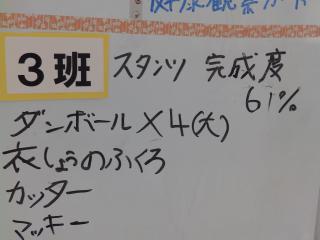 3班
スタンツ 完成度
61%
ダンボール×4(大)
衣しょうのふくろ
カッター
マッキー